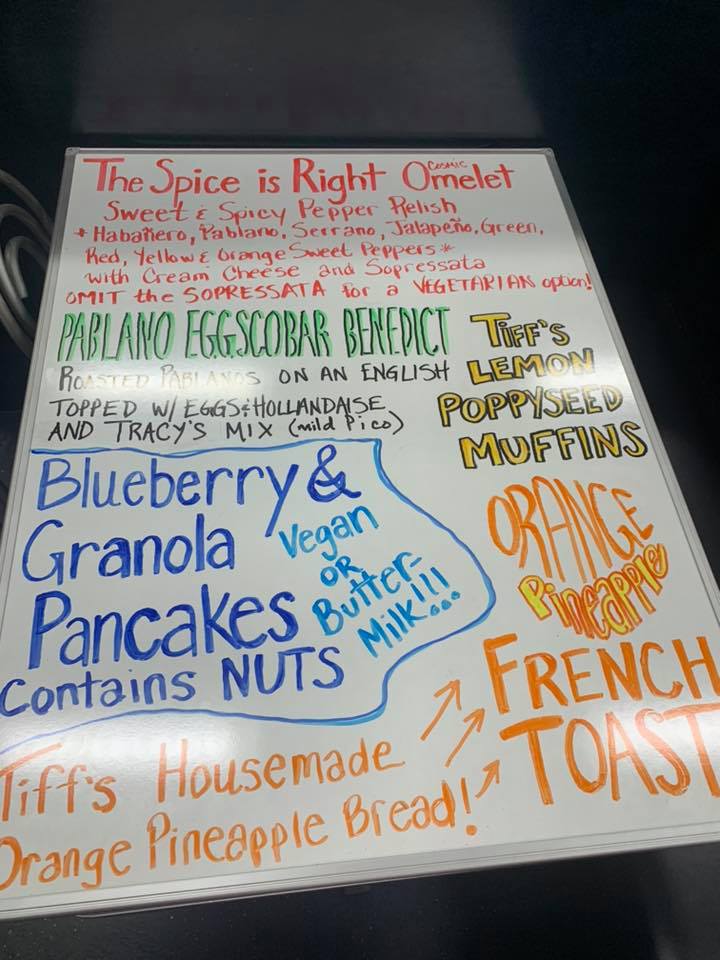 The Spice is Right Cosmic Omelet
Sweet & Spicy Pepper Relish
* Habañero, Pablano, Serrano, Jalapeño, Green,
Red, Yellow & Orange Sweet Peppers *
with Cream Cheese and Sopressata
OMIT the SOPRESSATA for a VEGETARIAN option!
PABLANO EGGSCOBAR BENEDICT
ROASTED PABLANOS ON AN ENGLISH
TOPPED W/ EGGS & HOLLANDAISE
AND TRACY'S MIX (mild Pico)
TIFF'S
LEMON
POPPYSEED
MUFFINS
Blueberry &
Granola
Pancakes
Contains NUTS
Vegan
OR
Butter-
Milk!!!
ORANGE
Pineapple
FRENCH
TOAST
Tiff's Housemade
Orange Pineapple Bread!